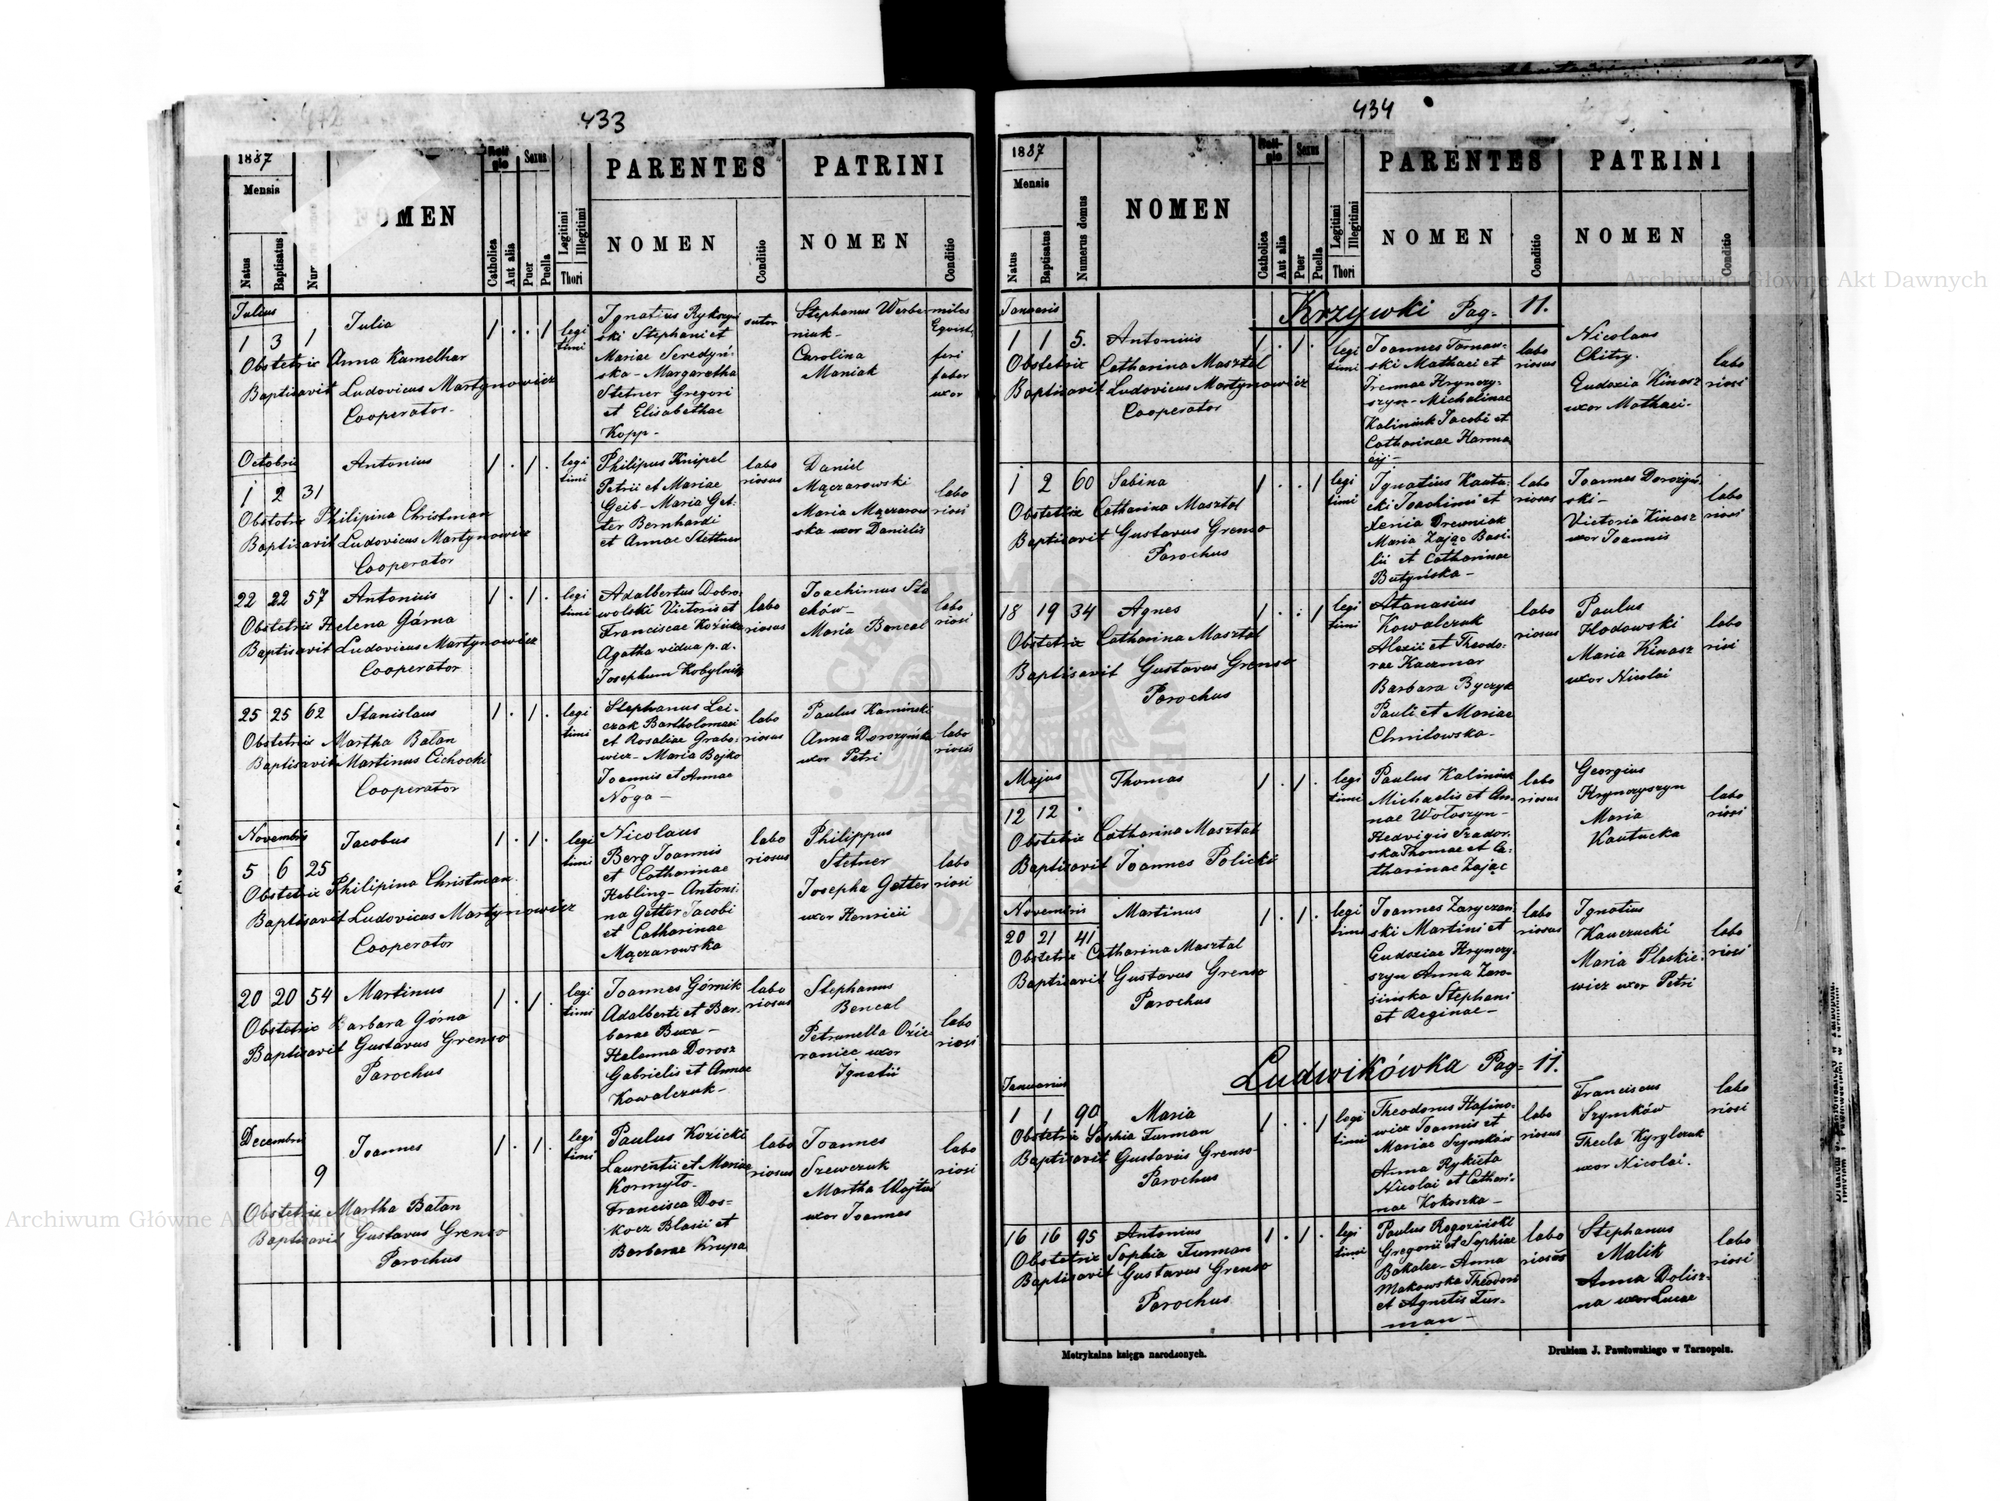 433
1887
Mensis
Natus
Baptisatus
NOMEN
Religio
Catholica
Aut alia
Sexus
Puer
Puella
Legitimi
Illegitimi
Thori
PARENTES
NOMEN
Conditio
PATRINI
NOMEN
Conditio
Julius
1 3 1
Julia
Obstetrix Anna Kamelhar
Baptisavit Ludovicus Martynowicz
Cooperator
1 . . 1
legi
timi
Ignatius Rykszyń
ski Stephani et
Mariae Seredyń-
ska - Margaretha
Stetner Gregori
et Elisabethae
Kopp -
sutor
Stephanus Werbe
niuk -
Carolina
Maniak
miles
feri
faber
uxor
Octobris
1 2 31
Antonius
Obstetrix Philipina Christman
Baptisavit Ludovicus Martynowicz
Cooperator
1 . 1 .
legi
timi
Philipus Knipel
Petrii et Mariae
Geib - Maria Get-
ter Bernhardi
et Annae Stettner
labo
riosus
Daniel
Mączarowski
Maria Mączarow
ska uxor Danielis
labo
riosi
22 22 57
Antonius
Obstetrix Helena Górna
Baptisavit Ludovicus Martynowicz
Cooperator
1 . 1 .
legi
timi
Adalbertus Dobro-
wolski Victoris et
Franciscae Kozicka
Agatha vidua p. d.
Josephum Kobylnik
labo
riosus
Joachimus Sta
ców -
Maria Bencal
labo
riosi
25 25 62
Stanislaus
Obstetrix Martha Balan
Baptisavit Martinus Cichocki
Cooperator
1 . 1 .
legi
timi
Stephanus Lei-
czak Bartholomaei
et Rosaliae Grabo-
wicz - Maria Bojko
Joannis et Annae
Noga -
labo
riosus
Paulus Kaminski
Anna Dorozyńska
uxor Petri
labo
riosi
Novembris
5 6 25
Jacobus
Obstetrix Philipina Christman
Baptisavit Ludovicus Martynowicz
Cooperator
1 . 1 .
legi
timi
Nicolaus
Berg Joannis
et Catharinae
Hebling - Antoni
na Getter Jacobi
et Catharinae
Mączarowska
labo
riosus
Philippus
Stetner
Josepha Getter
uxor Henricii
labo
riosi
20 20 54
Martinus
Obstetrix Barbara Górna
Baptisavit Gustavus Grenso
Parochus
1 . 1 .
legi
timi
Joannes Górnik
Adalberti et Bar-
barae Buxa -
Helanna Dorosz
Gabrielis et Annae
Kowalczuk -
labo
riosus
Stephanus
Bencal
Petrunella Ozie
raniec uxor
Ignatii
labo
riosi
Decembris
9
Joannes
Obstetrix Martha Balan
Baptisavit Gustavus Grenso
Parochus
1 . 1 .
legi
timi
Paulus Kozicki
Laurentii et Mariae
Kormyto -
Francisca Dos-
kocz Blasii et
Barbarae Krupa
labo
riosus
Joannes
Szewczuk
Martha Wojtuś
uxor Joannes
labo
riosi
434
1887
Mensis
Natus
Baptisatus
Numerus domus
NOMEN
Religio
Catholica
Aut alia
Sexus
Puer
Puella
Legitimi
Illegitimi
Thori
PARENTES
NOMEN
Conditio
PATRINI
NOMEN
Conditio
Krzywki Pag - 11.
Januaris
1 1 5.
Antonius
Obstetrix Catharina Masztal
Baptisavit Ludovicus Martynowicz
Cooperator
1 . 1 .
legi
timi
Joannes Tarnaw-
ski Mathaei et
Irennae Hrynczy-
szyn - Michalinae
Kaliniuk Jacobi et
Catharinae Harma
cij -
labo
riosus
Nicolaus
Chitry.
Eudoxia Kinasz
uxor Mathaei -
labo
riosi
1 2 60
Sabina
Obstetrix Catharina Masztal
Baptisavit Gustavus Grenso
Parochus
1 . . 1
legi
timi
Ignatius Kauta-
cki Joachimi et
Xenia Drewniak
Maria Zając Basi-
lii et Catharinae
Butyńska -
labo
riosus
Joannes Dorozyń
ski -
Victoria Kinasz
uxor Joannis
labo
riosi
18 19 34
Agnes
Obstetrix Catharina Masztal
Baptisavit Gustavus Grenso
Parochus
1 . . 1
legi
timi
Atanasius
Kowalczuk
Alexii et Theodo-
rae Kaczmar
Barbara Byczyk
Pauli et Mariae
Chmilowska -
labo
riosus
Paulus
Hodowski
Maria Kinasz
uxor Nicolai
labo
riosi
Majus
12 12
Thomas
Obstetrix Catharina Masztal
Baptisavit Joannes Policki
1 . 1 .
legi
timi
Paulus Kaliniuk
Michaelis et An-
nae Wołoszyn -
Hedvigis Szador-
ska Thomae et Ca-
tharinae Zając
labo
riosus
Georgius
Hrynczyszyn
Maria
Kautucka
labo
riosi
Novembris
20 21 41
Martinus
Obstetrix Catharina Masztal
Baptisavit Gustavus Grenso
Parochus
1 . 1 .
legi
timi
Joannes Zaryczan-
ski Martini et
Eudoxiae Hrynczy-
szyn Anna Zaro-
sińska Stephani
et Reginae -
labo
riosus
Ignatius
Kauczucki
Maria Plackie-
wicz uxor Petri
labo
riosi
Ludwikówka Pag - 11.
Januarius
1 1 90
Maria
Obstetrix Sophia Furman
Baptisavit Gustavus Grenso
Parochus
1 . . 1
legi
timi
Theodorus Hafino-
wicz Joannis et
Mariae Szymków
Anna Rykieta
Nicolai et Cathari-
nae Kokoszka -
labo
riosus
Franciscus
Szymków
Thecla Kyrylczuk
uxor Nicolai.
labo
riosi
16 16 95
Antonius
Obstetrix Sophia Furman
Baptisavit Gustavus Grenso
Parochus
1 . 1 .
legi
timi
Paulus Rogoziński
Gregorii et Sophiae
Bakalec - Anna
Makowska Theodori
et Agnetis Fur-
man -
labo
riosus
Stephanus
Malik
Anna Dolisz-
na uxor Lucae
labo
riosi
Metrykalna księga narodzonych.
Drukiem J. Pawłowskiego w Tarnopolu.
Archiwum Główne Akt Dawnych
Archiwum Główne Akt Dawnych